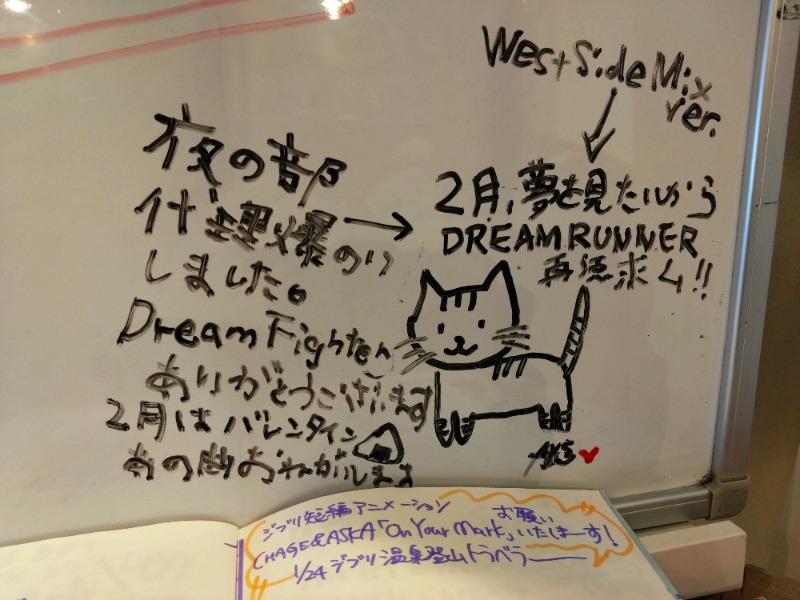 West Side Mix
ver.
夜の部
代理爆のり
しました。
Dream Fighter
ありがとうございます
2月はバレンタイン
あの曲おねがいします
2月、夢を見たいから
DREAM RUNNER
再び求ム!!
ジブリ短編アニメーション
CHAGE&ASKA「On Your Mark」お願いいたしまーす!
1/24 ジブリ温泉登山トラベラー